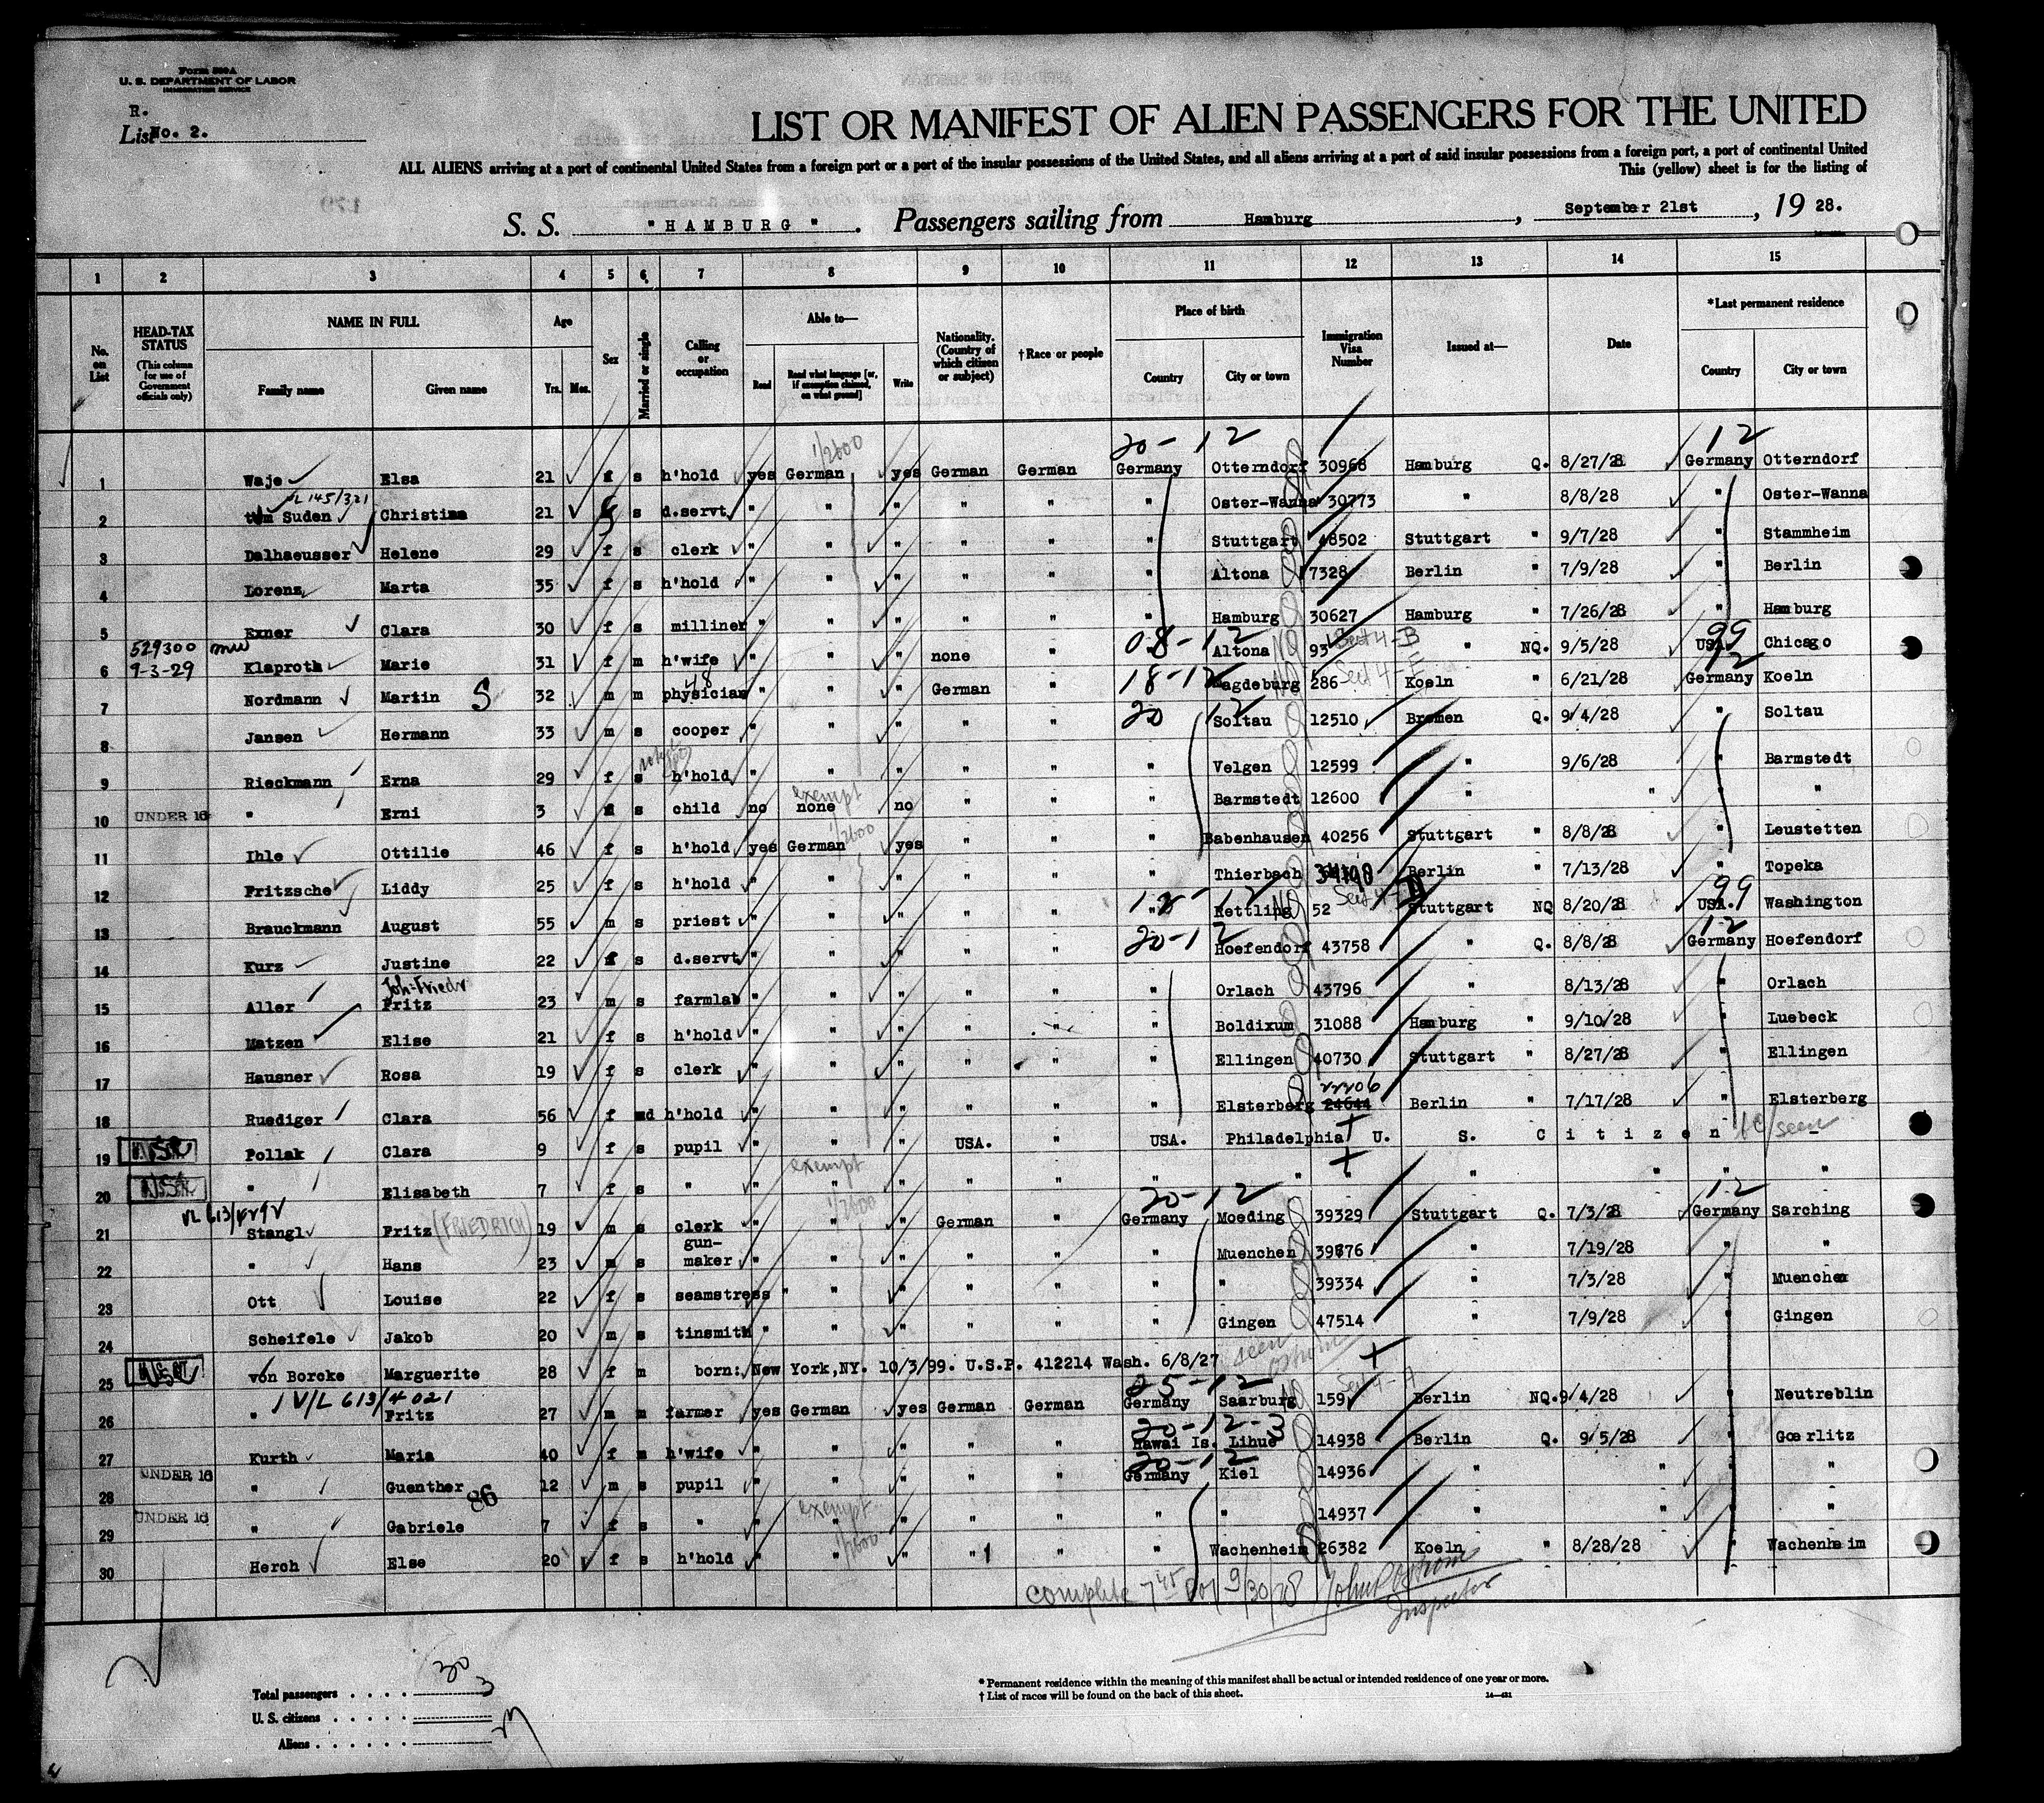 Form 500A
U. S. DEPARTMENT OF LABOR
IMMIGRATION SERVICE
R.
List No. 2.
LIST OR MANIFEST OF ALIEN PASSENGERS FOR THE UNITED
ALL ALIENS arriving at a port of continental United States from a foreign port or a port of the insular possessions of the United States, and all aliens arriving at a port of said insular possessions from a foreign port, a port of continental United
This (yellow) sheet is for the listing of
S. S. "HAMBURG". Passengers sailing from Hamburg, September 21st, 19 28.
1 2 3 4 5 6 7 8 9 10 11 12 13 14 15
No. on List
HEAD-TAX STATUS (This column for use of Government officials only)
NAME IN FULL
Family name Given name
Age Yrs. Mos.
Sex
Married or single
Calling or occupation
Able to—
Read Read what language [or, if exemption claimed, on what ground] Write
Nationality. (Country of which citizen or subject)
†Race or people
Place of birth
Country City or town
Immigration Visa Number
Issued at—
Date
*Last permanent residence
Country City or town
20-12 12
1 Waje Elsa 21 f s h'hold yes German yes German German Germany Otterndorf 30968 Hamburg Q. 8/27/28 Germany Otterndorf
2 tom Suden Christina 21 f s d.servt " " " " " " Oster-Wanna 30773 " 8/8/28 " Oster-Wanna
3 Dalhaeusser Helene 29 f s clerk " " " " " " Stuttgart 48502 Stuttgart " 9/7/28 " Stammheim
4 Lorenz Marta 35 f s h'hold " " " " " " Altona 7328 Berlin " 7/9/28 " Berlin
5 Exner Clara 30 f s milliner " " " " " " Hamburg 30627 Hamburg " 7/26/28 " Hamburg
529300 9-3-29
6 Klaproth Marie 31 f m h'wife " " " none " " Altona 93 Sect 4-B " NQ. 9/5/28 USA. 99 Chicago
7 Nordmann Martin S 32 m m physician 48 " " " German " 18-12 Magdeburg 286 Koeln " 6/21/28 Germany 12 Koeln
8 Jansen Hermann 33 m s cooper " " " " " 20 12 Soltau 12510 Bremen Q. 9/4/28 " Soltau
9 Rieckmann Erna 29 f s h'hold " " " " " " Velgen 12599 " 9/6/28 " Barmstedt
10 UNDER 16 " Erni 3 s child no none exempt no " " " Barmstedt 12600 " " " "
11 Ihle Ottilie 46 f s h'hold yes German yes " " " Babenhausen 40256 Stuttgart " 8/8/28 " Leustetten
12 Fritzsche Liddy 25 f s h'hold " " " " " " Thierbach Berlin " 7/13/28 " Topeka
13 Brauckmann August 55 m s priest " " " " " " Rettling 52 Stuttgart NQ 8/20/28 USA. 99 Washington
14 Kurz Justine 22 f s d.servt " " " " " 20-12 Hoefendorf 43758 " Q. 8/8/28 Germany 12 Hoefendorf
15 Aller Joh-Friedr Fritz 23 m s farmlab " " " " " " Orlach 43796 " 8/13/28 " Orlach
16 Matzen Elise 21 f s h'hold " " " " " " Boldixum 31088 Hamburg " 9/10/28 " Luebeck
17 Hausner Rosa 19 f s clerk " " " " " " Ellingen 40730 Stuttgart " 8/27/28 " Ellingen
18 Ruediger Clara 56 f md h'hold " " " " " " Elsterberg 24644 Berlin " 7/17/28 " Elsterberg
19 Pollak Clara 9 f s pupil " " " USA. " USA. Philadelphia U. S. Citizen seen
20 " Elisabeth 7 f s " " exempt " " " " " " " " " "
21 Stangl Fritz (FRIEDRICH) 19 m s clerk " " " German " 20-12 Germany Moeding 39329 Stuttgart Q. 7/3/28 Germany 12 Sarching
22 " Hans 23 m s gun-maker " " " " " " Muenchen 39676 " 7/19/28 " "
23 Ott Louise 22 f s seamstress " " " " " " " 39334 " 7/3/28 " Muenchen
24 Scheifele Jakob 20 m s tinsmith " " " " " " Gingen 47514 " 7/9/28 " Gingen
25 von Borcke Marguerite 28 f m born: New York,NY. 10/3/99. U.S.P. 412214 Wash. 6/8/27 seen
V/L 613/4021
26 " Fritz 27 m m farmer yes German yes German German 25-12 Germany Saarburg 159 Berlin NQ. 9/4/28 " Neutreblin
27 Kurth Maria 40 f m h'wife " " " " " 20-12-3 Hawai Is. Lihue 14938 Berlin Q. 9/5/28 " Goerlitz
28 UNDER 16 " Guenther 12 m s pupil " " " " " 20-12 Germany Kiel 14936 " " " "
86
29 UNDER 16 " Gabriele 7 f s " " exempt " " " " " " 14937 " " " "
30 Herch Else 20 f s h'hold " " " " " " Wachenheim 26382 Koeln " 8/28/28 " Wachenheim
complete 7 45 9/30/28
Inspector
Total passengers . . . . 30
U. S. citizens . . . . . 3
Aliens . . . . . .
* Permanent residence within the meaning of this manifest shall be actual or intended residence of one year or more.
† List of races will be found on the back of this sheet. 14—421